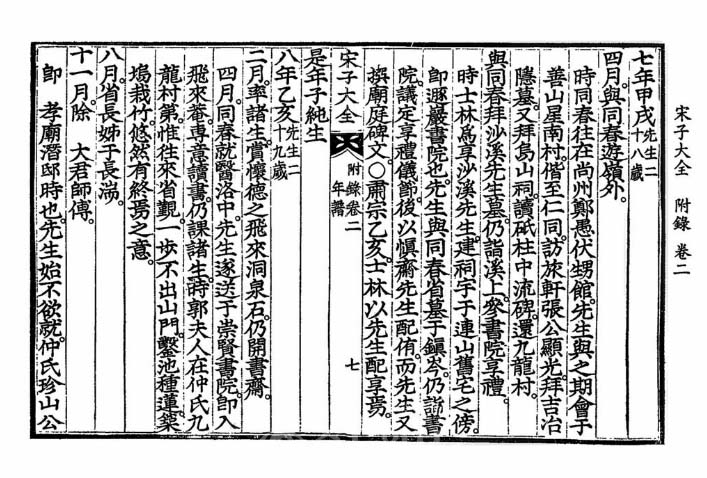 宋子大全 附錄 卷二
七年甲戌先生二十八歲
四月。與同春遊嶺外。
時同春往在尚州鄭愚伏甥館。先生與之期會于
善山星南村。偕至仁同。訪旅軒張公顯光。拜吉冶
隱墓。又拜烏山祠。讀砥柱中流碑。還九龍村。
與同春拜沙溪先生墓。仍詣溪上。參書院享禮。
時士林爲享沙溪先生。建祠宇于連山舊宅之傍。
卽遯巖書院也。先生與同春省墓于鎭岑。仍詣書
院。議定享禮儀節。後以愼齋先生配侑。而先生又
撰廟庭碑文。○肅宗乙亥。士林以先生配享焉。
宋子大全 附錄卷二 年譜 七
是年子純生
八年乙亥先生二十九歲
二月。率諸生。賞懷德之飛來洞泉石。仍開書齋。
四月。同春就醫洛中。先生遂送于崇賢書院。卽入
飛來菴。專意讀書。仍課諸生。時郭夫人在仲氏九
龍村第。惟往來省覲。一步不出山門。鑿池種蓮。築
塢栽竹。悠然有終焉之意。
八月。省長姊于長湍。
十一月。除 大君師傅。
卽 孝廟潛邸時也。先生始不欲就。仲氏珍山公